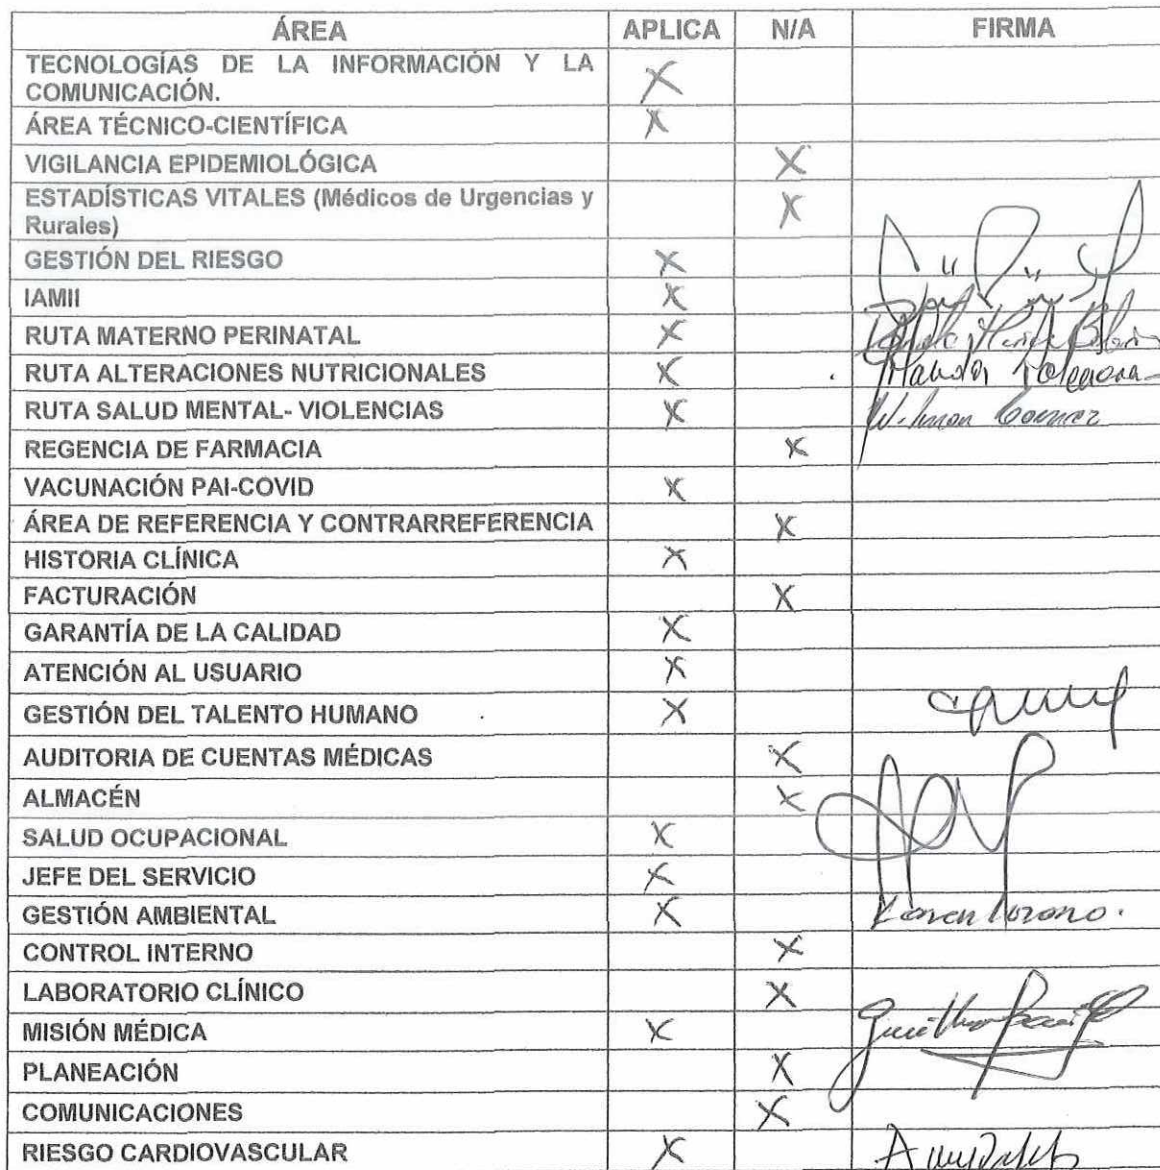 ÁREA APLICA N/A FIRMA
TECNOLOGÍAS DE LA INFORMACIÓN Y LA X
COMUNICACIÓN.
ÁREA TÉCNICO-CIENTÍFICA X
VIGILANCIA EPIDEMIOLÓGICA X
ESTADÍSTICAS VITALES (Médicos de Urgencias y X
Rurales)
GESTIÓN DEL RIESGO X
IAMII X
RUTA MATERNO PERINATAL X
RUTA ALTERACIONES NUTRICIONALES X
RUTA SALUD MENTAL- VIOLENCIAS X
REGENCIA DE FARMACIA X
VACUNACIÓN PAI-COVID X
ÁREA DE REFERENCIA Y CONTRARREFERENCIA X
HISTORIA CLÍNICA X
FACTURACIÓN X
GARANTÍA DE LA CALIDAD X
ATENCIÓN AL USUARIO X
GESTIÓN DEL TALENTO HUMANO X
AUDITORIA DE CUENTAS MÉDICAS X
ALMACÉN X
SALUD OCUPACIONAL X
JEFE DEL SERVICIO X
GESTIÓN AMBIENTAL X Karen
CONTROL INTERNO X
LABORATORIO CLÍNICO X
MISIÓN MÉDICA X
PLANEACIÓN X
COMUNICACIONES X
RIESGO CARDIOVASCULAR X